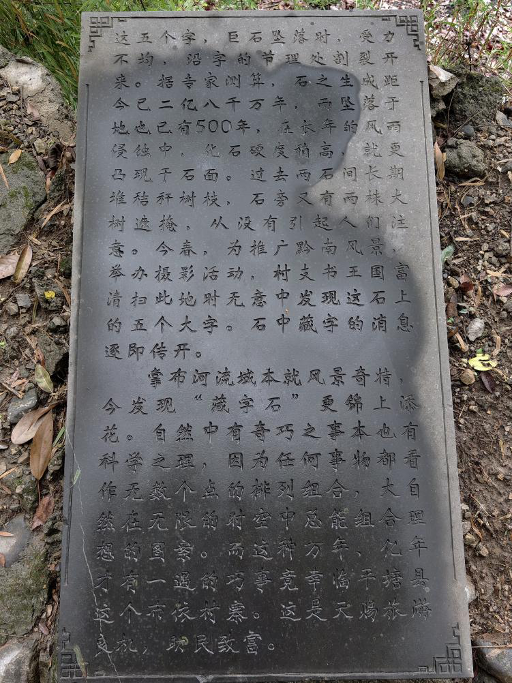 这五个字，巨石坠落时，受力
不均，沿字的节理处割裂开
来。据专家测算，石之生成距
今已二亿八千万年，而坠落于
地也已有500年，在长年的风雨
侵蚀中，化石硬度稍高，就更
凸现于石面。过去两石间长期
堆秸秆树枝，石旁又有两株大
树遮掩，从没有引起人们注
意。今春，为推广黔南风景，
举办摄影活动，村支书王国富
清扫此地时无意中发现这石上
的五个大字。石中藏字的消息
逐即传开。
掌布河流域本就风景奇特，
今发现“藏字石”更锦上添
花。自然中有奇巧之事本也有
科学之理，因为任何事物都看
作无数个点的排列组合，大自
然在无限的时空中总能组合理
想的图案。而这种万年、亿年
才有一遇的巧事竟幸临平塘县
这个布依村寨。这是天赐旅游
良机，助民致富。